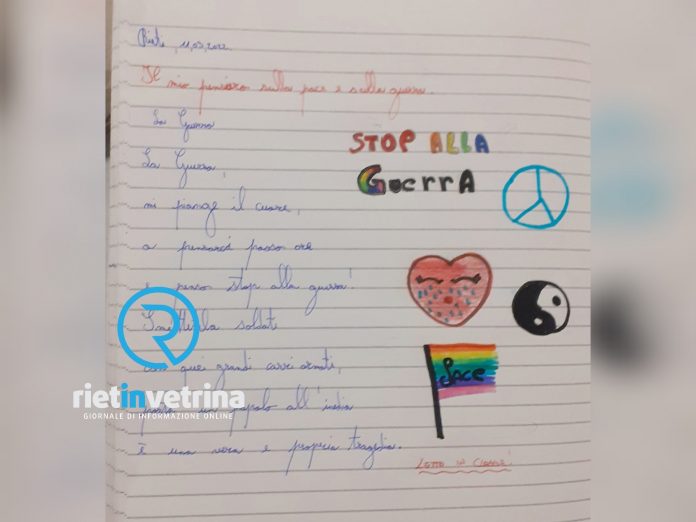 Rieti, 11,03,2022.
Il mio pensiero sulla pace e sulla guerra.
La Guerra
La Guerra,
mi piange il cuore,
a pensarci passo ore
e penso stop alla guerra!
Smettetela soldati
con quei grandi carri armati,
un popolo all'
è una vera e propria tragedia.
STOP ALLA
GuerrA
Pace
Letto in classe!
rietinvetrina
GIORNALE DI INFORMAZIONE ONLINE